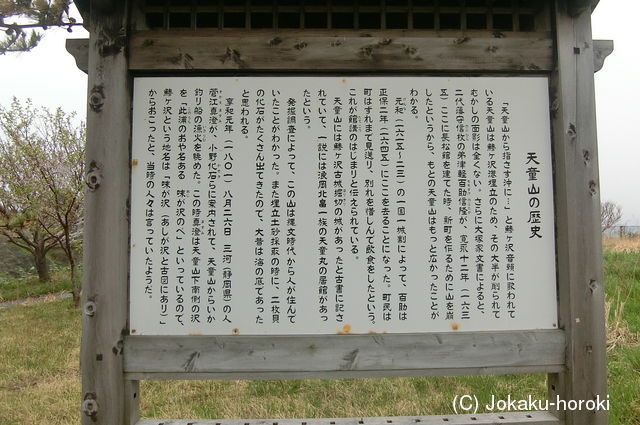 天童山の歴史
「天童山から指さす沖に…」と鯵ヶ沢音頭に歌われて
いる天童山は鯵ヶ沢港埋立のため、その大半が削られて
むかしの面影は全くない。さらに大塚家文書によると、
二代藩守信牧の弟津軽百助信隆が、寛永十二年(一六三
五)ここに長松館を建てた時、新町を作るために山を崩
したというから、もとの天童山はもっと広かったことが
わかる。
元和(一六一五〜二三)の一国一城割によって、百助は
正保二年(一六四五)にここを去ることになった。町民は
町はずれまで見送り、別れを惜しんで飲食をしたという。
これが館議のはじまりと伝えられている。
天童山には鯵ヶ沢古城堀切の城があったと古書に記さ
れていて、一説には浪岡北畠一族の天童丸の居館があっ
たという。
発掘調査によって、この山は縄文時代から人が住んで
いたことがわかった。また埋立土砂採取の時に、二枚貝
の化石がたくさん出てきたので、大昔は海の底であった
と思われる。
享和元年(一八〇一)八月二六日 三河(静岡県)の人
菅江真澄が、小野化石らに案内されて、天童山からいか
釣り船の漁火を眺めた。この時真澄は天童山下南側の沢
を「此浦のおや名ある 味が沢のべ」といっているので、
鯵ヶ沢という地名は「味が沢(あしが沢と古図にあり)」
からおこったと、当時の人々は言っていたようだ。
(C) Jokaku-horoki